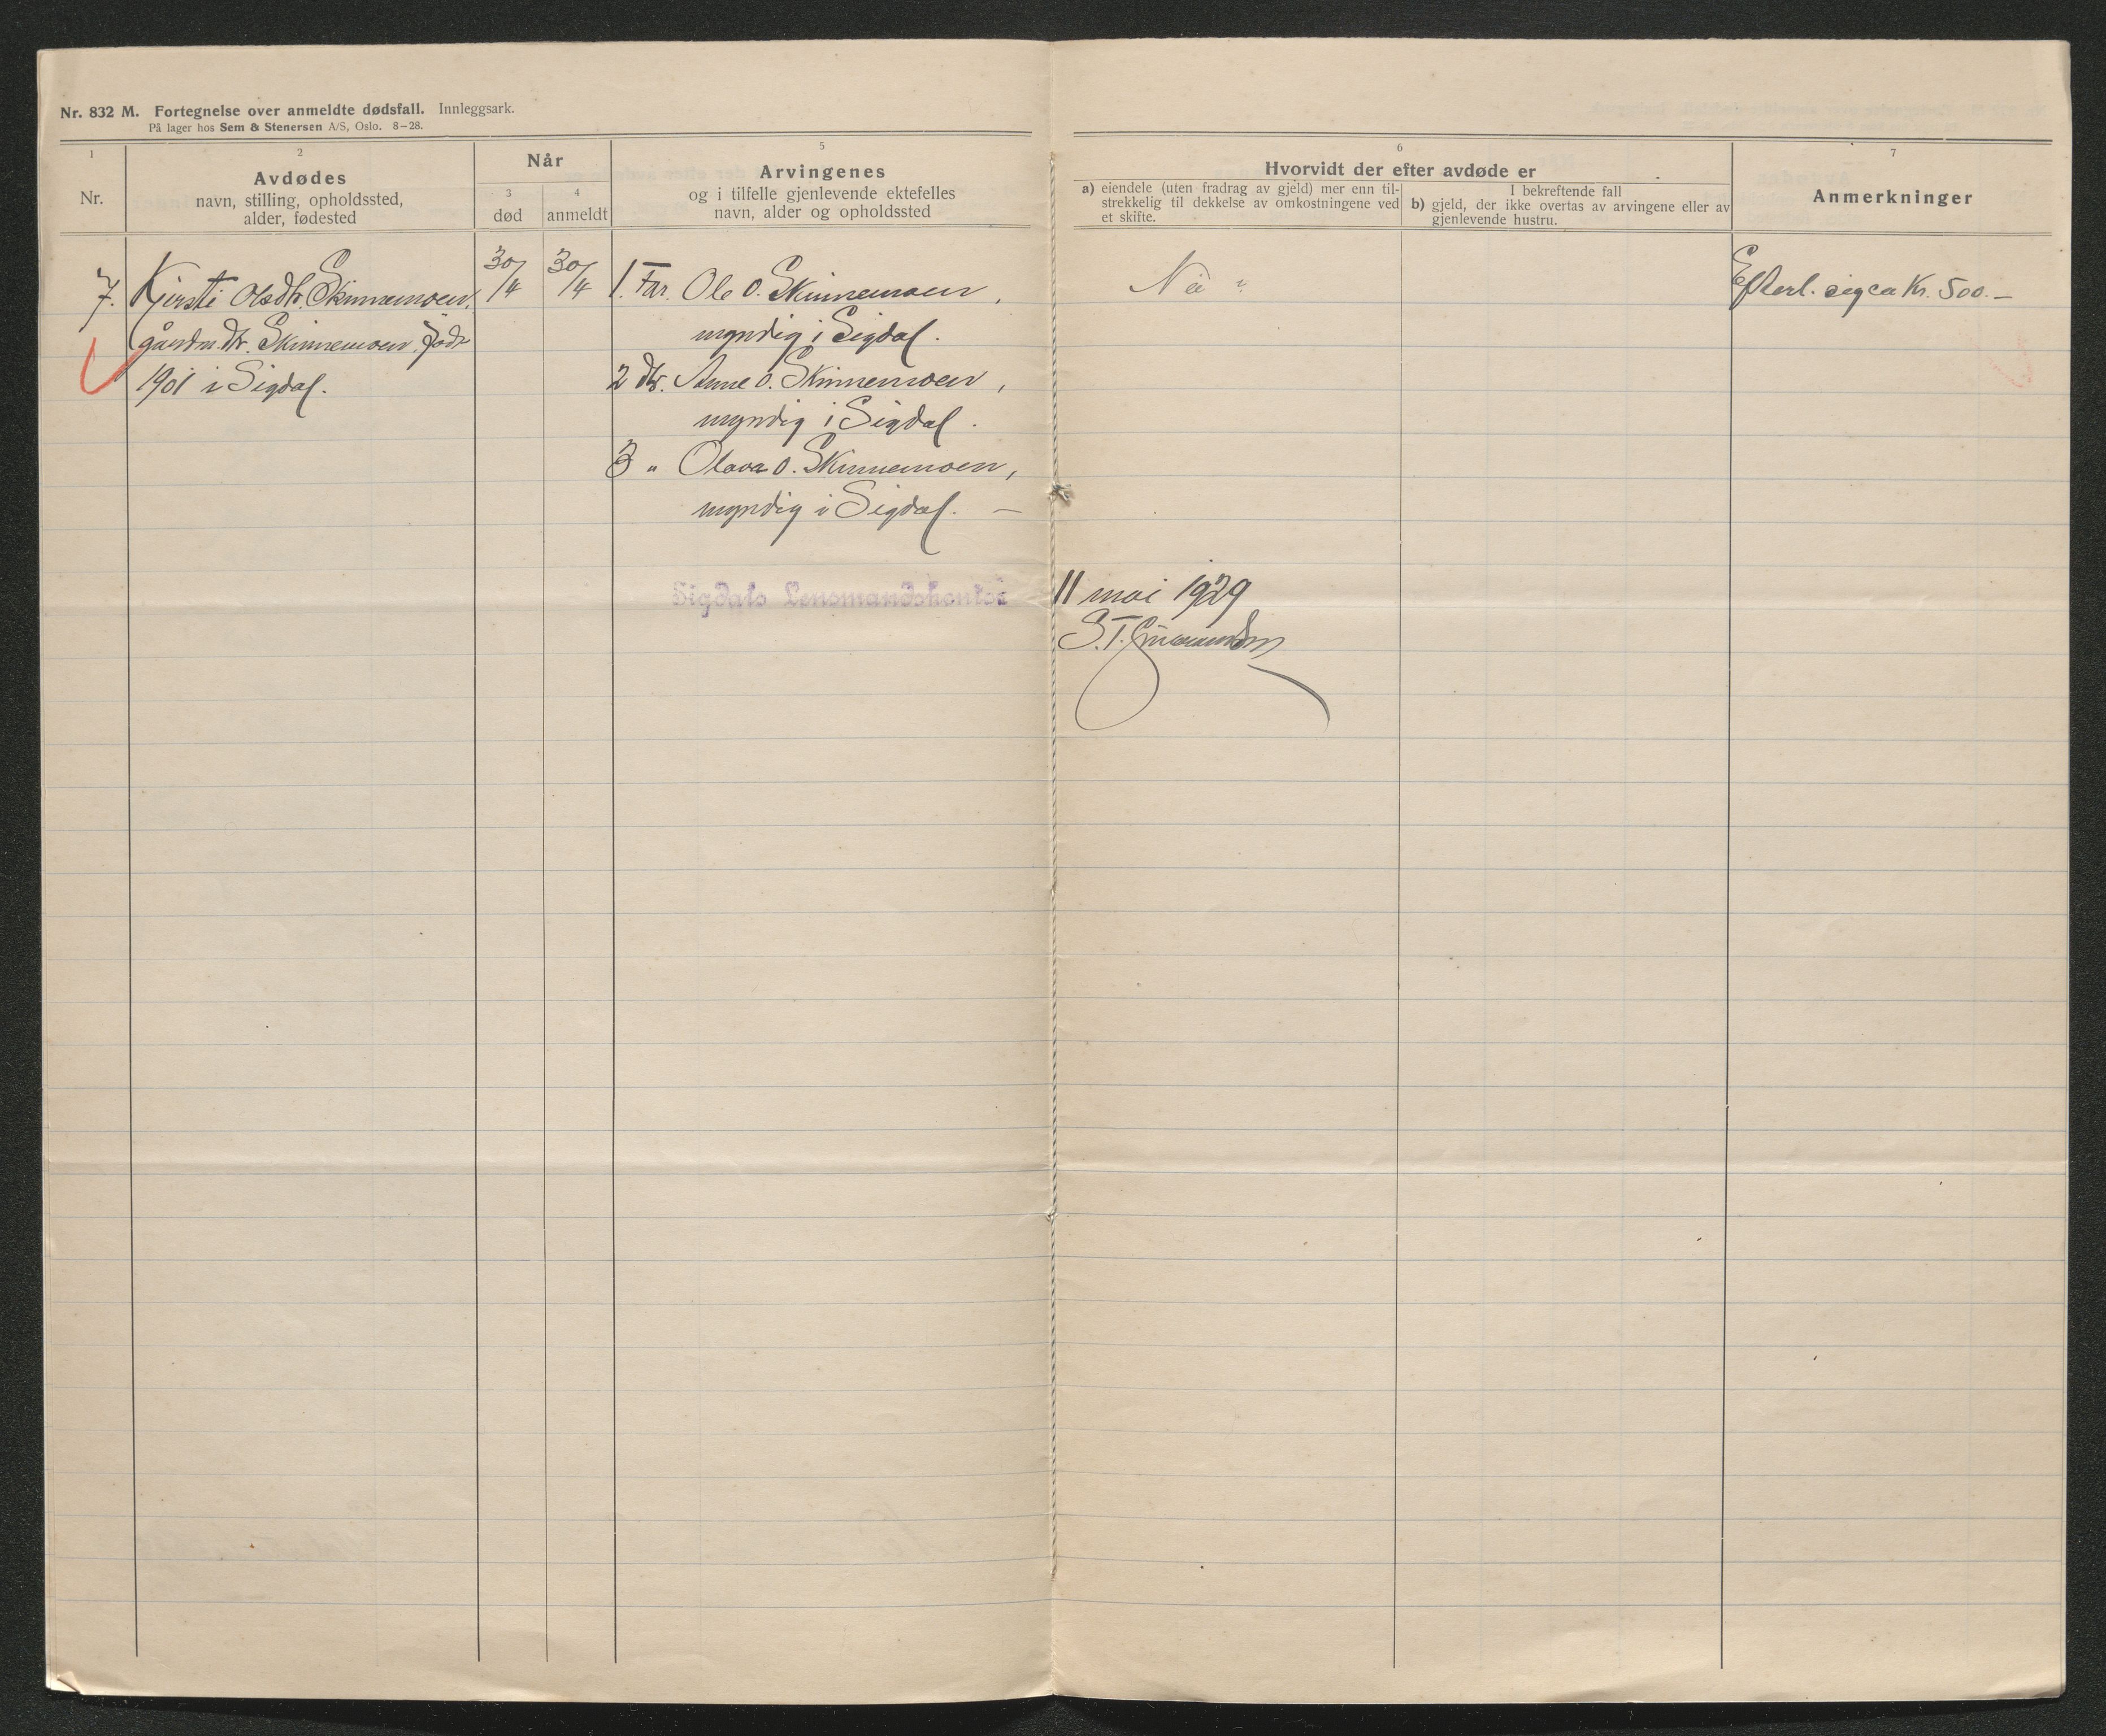 Nr. 832 M. Fortegnelse over anmeldte dødsfall. Innleggsark.
På lager hos Sem & Stenersen A/S, Oslo. 8–28.
1
Nr.
2
Avdødes
navn, stilling, opholdssted,
alder, fødested
Når
3
død
4
anmeldt
5
Arvingenes
og i tilfelle gjenlevende ektefelles
navn, alder og opholdssted
6
Hvorvidt der efter avdøde er
a) eiendele (uten fradrag av gjeld) mer enn til-
strekkelig til dekkelse av omkostningene ved
et skifte.
I bekreftende fall
b) gjeld, der ikke overtas av arvingene eller av
gjenlevende hustru.
7
Anmerkninger
7.
Kjersti Olsdtr. Skinnemoen,
gårdm. dtr. Skinnemoen, født
1901 i Sigdal.
30/4
30/4
1. Far. Ole O. Skinnemoen,
myndig i Sigdal.
2 dtr. Anne O. Skinnemoen,
myndig i Sigdal.
3 " Olava O. Skinnemoen,
myndig i Sigdal. —
Nei
Efterl. sig ca Kr. 500.—
Sigdals Lensmandskontor 11 mai 1929
S. T.